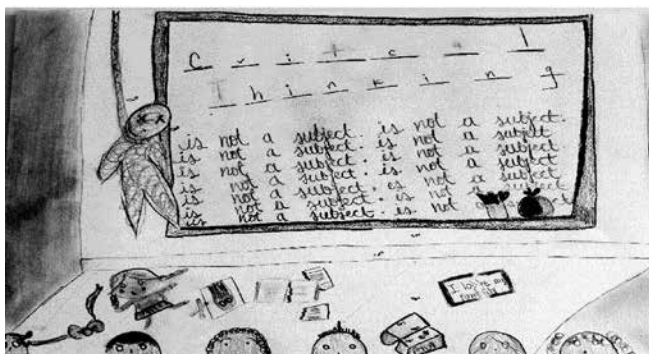 C r i t c a l
T h i n k i n g
is not a subject. is not a subject.
is not a subject. is not a subject
is not a subject. is not a subject
is not a subject. is not a subject
is not a subject. is not a subject
is not a subject. is not a subject
is not a subject. is not
I love my family